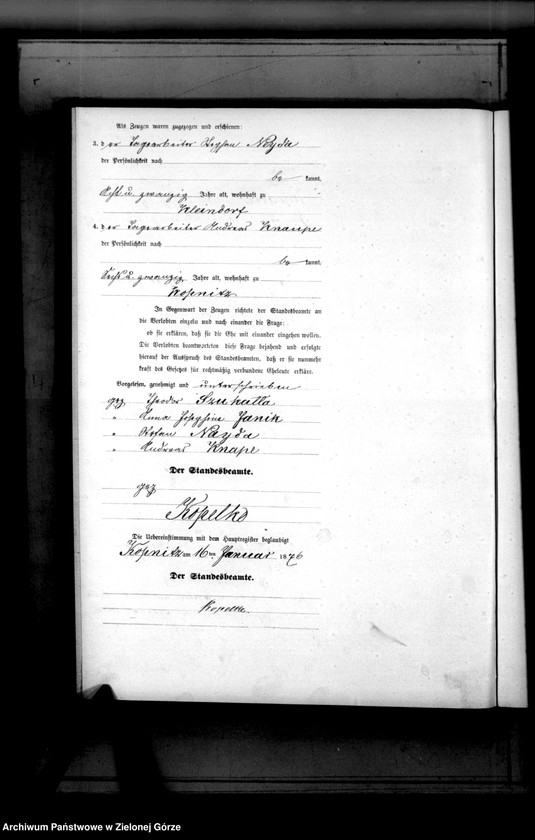 Als Zeugen waren zugezogen und erschienen:
3. der Tagearbeiter Stephan Nayda
der Persönlichkeit nach
be kannt,
Acht u. zwanzig Jahre alt, wohnhaft zu
Kleindorf
4. der Tagearbeiter Andreas Knaupe
der Persönlichkeit nach
be kannt,
Sechs u. zwanzig Jahre alt, wohnhaft zu
Kopnitz
In Gegenwart der Zeugen richtete der Standesbeamte an
die Verlobten einzeln und nach einander die Frage:
ob sie erklären, daß sie die Ehe mit einander eingehen wollen.
Die Verlobten beantworteten diese Frage bejahend und erfolgte
hierauf der Ausspruch des Standesbeamten, daß er sie nunmehr
kraft des Gesetzes für rechtmäßig verbundene Eheleute erkläre.
Vorgelesen, genehmigt und unterschrieben
gez. Theodor Szukatta
" Anna Josephine Janik
" Nayda
" Andreas Knape
Der Standesbeamte.
gez
Kopelke
Die Uebereinstimmung mit dem Hauptregister beglaubigt
Kopnitz am 16ten Januar 1876
Der Standesbeamte.
Kopelke
Archiwum Państwowe w Zielonej Górze